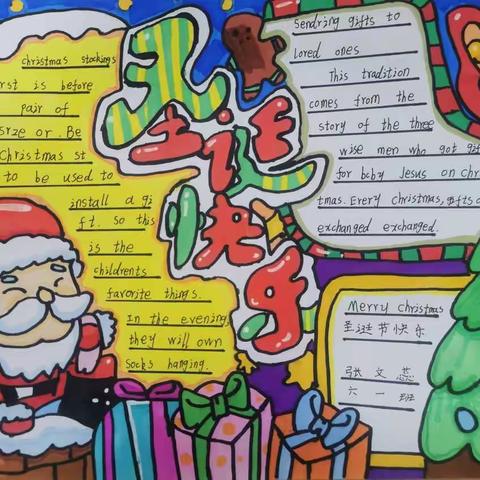 christmas stockings
rst is before
pair of
srze or. Be
christmas st
to be used to
install a gi
ft. So this
is the
childrents
favorite things.
In the evening,
they will own
Socks hanging.
圣诞快乐
Sendring gifts to
Loved ones
This tradition
comes from the
story of the three
wise men who got gif
for baby Jesus on chri
tmas. Every christmas, gifts a
exchanged exchanged.
Merry christmas
圣诞节快乐
张文蕊
六一班